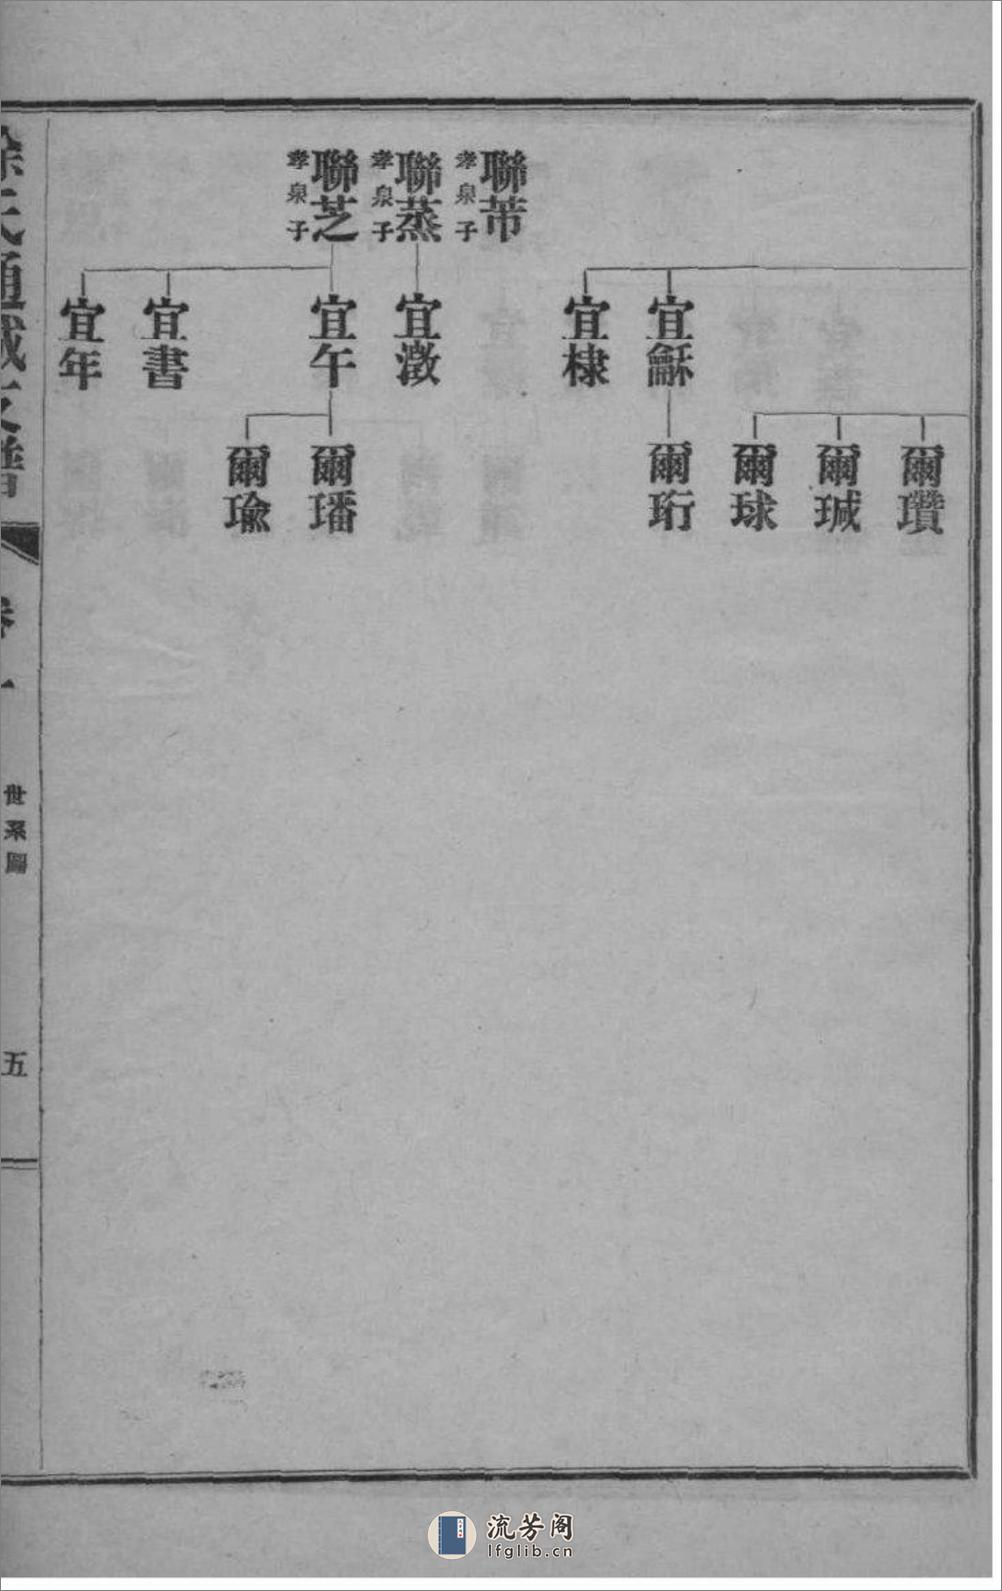 聯芾
孝泉子
聯蒸
孝泉子
聯芝
孝泉子
宜龢
宜棣
宜澂
宜午
宜書
宜年
爾瓚
爾瑊
爾球
爾珩
爾璠
爾瑜
徐氏通城支譜
卷一
世系圖
五
流芳阁
lfglib.cn